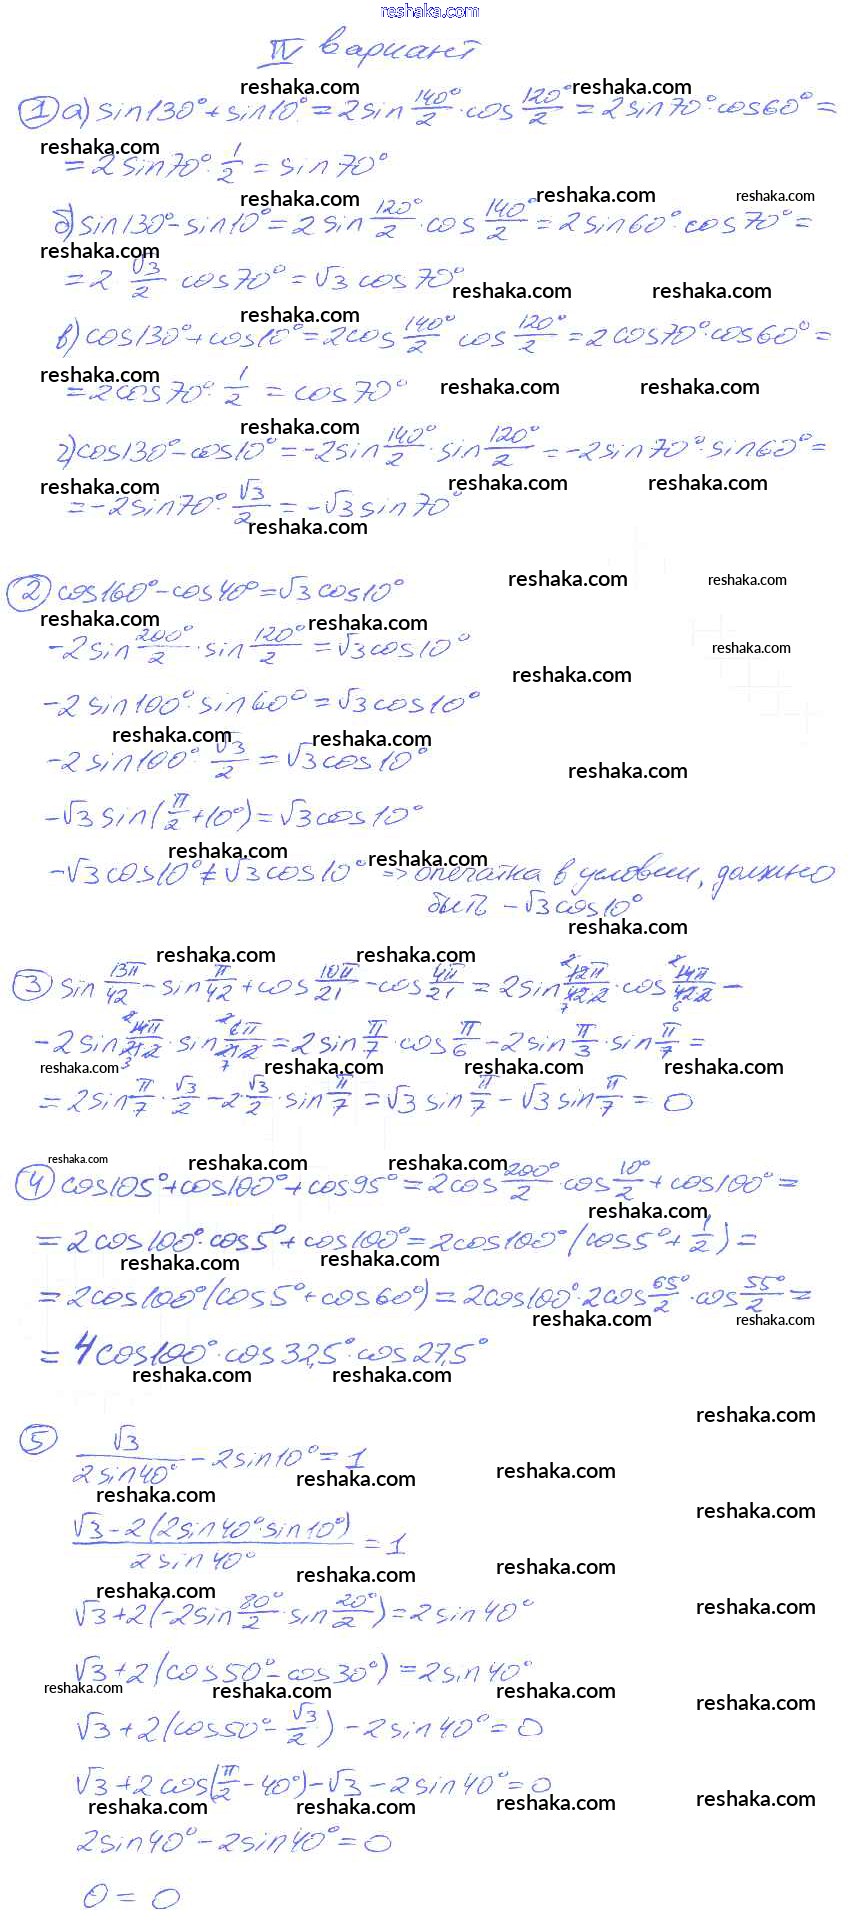 reshaka.com
IV вариант
reshaka.com reshaka.com
① а) sin130°+sin10° = 2sin 140°/2 · cos 120°/2 = 2sin70°·cos60° =
reshaka.com
= 2sin70°· 1/2 = sin70°
reshaka.com reshaka.com reshaka.com
б) sin130°-sin10° = 2sin 120°/2 · cos 140°/2 = 2sin60°·cos70° =
reshaka.com
= 2 √3/2 cos70° = √3 cos70°
reshaka.com reshaka.com
reshaka.com
в) cos130°+cos10° = 2cos 140°/2 cos 120°/2 = 2cos70°·cos60° =
reshaka.com reshaka.com reshaka.com
= 2cos70°· 1/2 = cos70°
reshaka.com
г) cos130°-cos10° = -2sin 140°/2 · sin 120°/2 = -2sin70°·sin60° =
reshaka.com reshaka.com reshaka.com
= -2sin70°· √3/2 = -√3 sin70°
reshaka.com
reshaka.com reshaka.com
② cos160°-cos40° = √3 cos10°
reshaka.com reshaka.com
-2sin 200°/2 · sin 120°/2 = √3 cos10°
reshaka.com
reshaka.com
-2sin100°·sin60° = √3 cos10°
reshaka.com reshaka.com
-2sin100°· √3/2 = √3 cos10°
reshaka.com
-√3 sin(π/2+10°) = √3 cos10°
reshaka.com reshaka.com
-√3 cos10° ≠ √3 cos10° => опечатка в условии, должно
быть -√3 cos10°
reshaka.com
reshaka.com reshaka.com
③ sin 13π/42 - sin π/42 + cos 10π/21 - cos 4π/21 = 2sin 12π/42·2 · cos 14π/42·2 -
-2sin 14π/21·2 · sin 6π/21·2 = 2sin π/7 · cos π/6 - 2sin π/3 · sin π/7 =
reshaka.com reshaka.com reshaka.com reshaka.com
= 2sin π/7 · √3/2 - 2· √3/2 · sin π/7 = √3 sin π/7 - √3 sin π/7 = 0
reshaka.com reshaka.com reshaka.com
④ cos105°+cos100°+cos95° = 2cos 200°/2 · cos 10°/2 + cos100° =
reshaka.com
= 2cos100°·cos5°+cos100° = 2cos100°(cos5°+ 1/2) =
reshaka.com reshaka.com
= 2cos100°(cos5°+cos60°) = 2cos100°·2cos 65°/2 · cos 55°/2 =
reshaka.com reshaka.com
= 4cos100°·cos32,5°·cos27,5°
reshaka.com reshaka.com
reshaka.com
⑤ √3/2sin40° - 2sin10° = 1
reshaka.com reshaka.com
reshaka.com
reshaka.com
√3-2(2sin40°·sin10°)/2sin40° = 1
reshaka.com reshaka.com
reshaka.com
√3+2(-2sin 80°/2 · sin 20°/2) = 2sin40°
reshaka.com
√3+2(cos50°-cos30°) = 2sin40°
reshaka.com reshaka.com reshaka.com
reshaka.com
√3+2(cos50°- √3/2) - 2sin40° = 0
√3+2cos(π/2-40°)-√3-2sin40° = 0
reshaka.com reshaka.com reshaka.com reshaka.com
2sin40°-2sin40° = 0
0 = 0